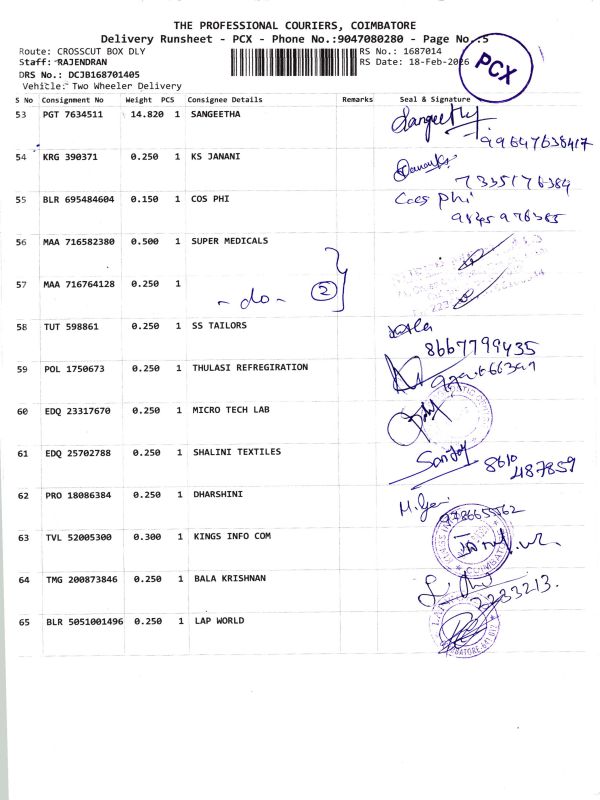 THE PROFESSIONAL COURIERS, COIMBATORE
Delivery Runsheet - PCX - Phone No.:9047080280 - Page No.:5
Route: CROSSCUT BOX DLY RS No.: 1687014
Staff: RAJENDRAN RS Date: 18-Feb-2026
PCX
DRS No.: DCJB168701405
Vehicle: Two Wheeler Delivery
S No Consignment No Weight PCS Consignee Details Remarks Seal & Signature
53 PGT 7634511 14.820 1 SANGEETHA Sangeetha
99647638417
54 KRG 390371 0.250 1 KS JANANI
7335176384
55 BLR 695484604 0.150 1 COS PHI Coes phi
9845976385
56 MAA 716582380 0.500 1 SUPER MEDICALS
57 MAA 716764128 0.250 1 - do - 2
58 TUT 598861 0.250 1 SS TAILORS
8667799435
59 POL 1750673 0.250 1 THULASI REFREGIRATION
60 EDQ 23317670 0.250 1 MICRO TECH LAB
61 EDQ 25702788 0.250 1 SHALINI TEXTILES Sanjay
8610
487859
62 PRO 18086384 0.250 1 DHARSHINI
9786655562
63 TVL 52005300 0.300 1 KINGS INFO COM
64 TMG 200873846 0.250 1 BALA KRISHNAN
2233213.
65 BLR 5051001496 0.250 1 LAP WORLD